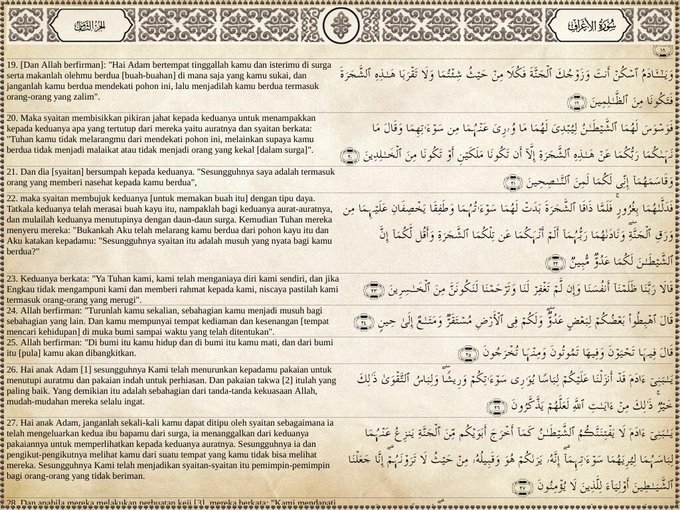 الجزء الثامن
سورة الأعراف
19. [Dan Allah berfirman]: "Hai Adam bertempat tinggallah kamu dan isterimu di surga
serta makanlah olehmu berdua [buah-buahan] di mana saja yang kamu sukai, dan
janganlah kamu berdua mendekati pohon ini, lalu menjadilah kamu berdua termasuk
orang-orang yang zalim".
20. Maka syaitan membisikkan pikiran jahat kepada keduanya untuk menampakkan
kepada keduanya apa yang tertutup dari mereka yaitu auratnya dan syaitan berkata:
"Tuhan kamu tidak melarangmu dari mendekati pohon ini, melainkan supaya kamu
berdua tidak menjadi malaikat atau tidak menjadi orang yang kekal [dalam surga]".
21. Dan dia [syaitan] bersumpah kepada keduanya. "Sesungguhnya saya adalah termasuk
orang yang memberi nasehat kepada kamu berdua",
22. maka syaitan membujuk keduanya [untuk memakan buah itu] dengan tipu daya.
Tatkala keduanya telah merasai buah kayu itu, nampaklah bagi keduanya aurat-auratnya,
dan mulailah keduanya menutupinya dengan daun-daun surga. Kemudian Tuhan mereka
menyeru mereka: "Bukankah Aku telah melarang kamu berdua dari pohon kayu itu dan
Aku katakan kepadamu: "Sesungguhnya syaitan itu adalah musuh yang nyata bagi kamu
berdua?"
23. Keduanya berkata: "Ya Tuhan kami, kami telah menganiaya diri kami sendiri, dan jika
Engkau tidak mengampuni kami dan memberi rahmat kepada kami, niscaya pastilah kami
termasuk orang-orang yang merugi".
24. Allah berfirman: "Turunlah kamu sekalian, sebahagian kamu menjadi musuh bagi
sebahagian yang lain. Dan kamu mempunyai tempat kediaman dan kesenangan [tempat
mencari kehidupan] di muka bumi sampai waktu yang telah ditentukan".
25. Allah berfirman: "Di bumi itu kamu hidup dan di bumi itu kamu mati, dan dari bumi
itu [pula] kamu akan dibangkitkan.
26. Hai anak Adam [1] sesungguhnya Kami telah menurunkan kepadamu pakaian untuk
menutupi auratmu dan pakaian indah untuk perhiasan. Dan pakaian takwa [2] itulah yang
paling baik. Yang demikian itu adalah sebahagian dari tanda-tanda kekuasaan Allah,
mudah-mudahan mereka selalu ingat.
27. Hai anak Adam, janganlah sekali-kali kamu dapat ditipu oleh syaitan sebagaimana ia
telah mengeluarkan kedua ibu bapamu dari surga, ia menanggalkan dari keduanya
pakaiannya untuk memperlihatkan kepada keduanya auratnya. Sesungguhnya ia dan
pengikut-pengikutnya melihat kamu dari suatu tempat yang kamu tidak bisa melihat
mereka. Sesungguhnya Kami telah menjadikan syaitan-syaitan itu pemimpin-pemimpin
bagi orang-orang yang tidak beriman.
28. Dan apabila mereka melakukan perbuatan keji [3], mereka berkata: "Kami mendapati
١٨
وَيَـٰٓـَٔادَمُ ٱسْكُنْ أَنتَ وَزَوْجُكَ ٱلْجَنَّةَ فَكُلَا مِنْ حَيْثُ شِئْتُمَا وَلَا تَقْرَبَا هَـٰذِهِ ٱلشَّجَرَةَ
فَتَكُونَا مِنَ ٱلظَّـٰلِمِينَ ١٩
فَوَسْوَسَ لَهُمَا ٱلشَّيْطَـٰنُ لِيُبْدِىَ لَهُمَا مَا وُۥرِىَ عَنْهُمَا مِن سَوْءَٰتِهِمَا وَقَالَ مَا
نَهَىٰكُمَا رَبُّكُمَا عَنْ هَـٰذِهِ ٱلشَّجَرَةِ إِلَّآ أَن تَكُونَا مَلَكَيْنِ أَوْ تَكُونَا مِنَ ٱلْخَـٰلِدِينَ ٢٠
وَقَاسَمَهُمَآ إِنِّى لَكُمَا لَمِنَ ٱلنَّـٰصِحِينَ ٢١
فَدَلَّىٰهُمَا بِغُرُورٍ ۚ فَلَمَّا ذَاقَا ٱلشَّجَرَةَ بَدَتْ لَهُمَا سَوْءَٰتُهُمَا وَطَفِقَا يَخْصِفَانِ عَلَيْهِمَا مِن
وَرَقِ ٱلْجَنَّةِ ۖ وَنَادَىٰهُمَا رَبُّهُمَآ أَلَمْ أَنْهَكُمَا عَن تِلْكُمَا ٱلشَّجَرَةِ وَأَقُل لَّكُمَآ إِنَّ
ٱلشَّيْطَـٰنَ لَكُمَا عَدُوٌّ مُّبِينٌ ٢٢
قَالَا رَبَّنَا ظَلَمْنَآ أَنفُسَنَا وَإِن لَّمْ تَغْفِرْ لَنَا وَتَرْحَمْنَا لَنَكُونَنَّ مِنَ ٱلْخَـٰسِرِينَ ٢٣
قَالَ ٱهْبِطُوا۟ بَعْضُكُمْ لِبَعْضٍ عَدُوٌّ ۖ وَلَكُمْ فِى ٱلْأَرْضِ مُسْتَقَرٌّ وَمَتَـٰعٌ إِلَىٰ حِينٍ ٢٤
قَالَ فِيهَا تَحْيَوْنَ وَفِيهَا تَمُوتُونَ وَمِنْهَا تُخْرَجُونَ ٢٥
يَـٰبَنِىٓ ءَادَمَ قَدْ أَنزَلْنَا عَلَيْكُمْ لِبَاسًا يُوَٰرِى سَوْءَٰتِكُمْ وَرِيشًا ۖ وَلِبَاسُ ٱلتَّقْوَىٰ ذَٰلِكَ
خَيْرٌ ۚ ذَٰلِكَ مِنْ ءَايَـٰتِ ٱللَّهِ لَعَلَّهُمْ يَذَّكَّرُونَ ٢٦
يَـٰبَنِىٓ ءَادَمَ لَا يَفْتِنَنَّكُمُ ٱلشَّيْطَـٰنُ كَمَآ أَخْرَجَ أَبَوَيْكُم مِّنَ ٱلْجَنَّةِ يَنزِعُ عَنْهُمَا
لِبَاسَهُمَا لِيُرِيَهُمَا سَوْءَٰتِهِمَآ ۗ إِنَّهُۥ يَرَىٰكُمْ هُوَ وَقَبِيلُهُۥ مِنْ حَيْثُ لَا تَرَوْنَهُمْ ۗ إِنَّا جَعَلْنَا
ٱلشَّيَـٰطِينَ أَوْلِيَآءَ لِلَّذِينَ لَا يُؤْمِنُونَ ٢٧